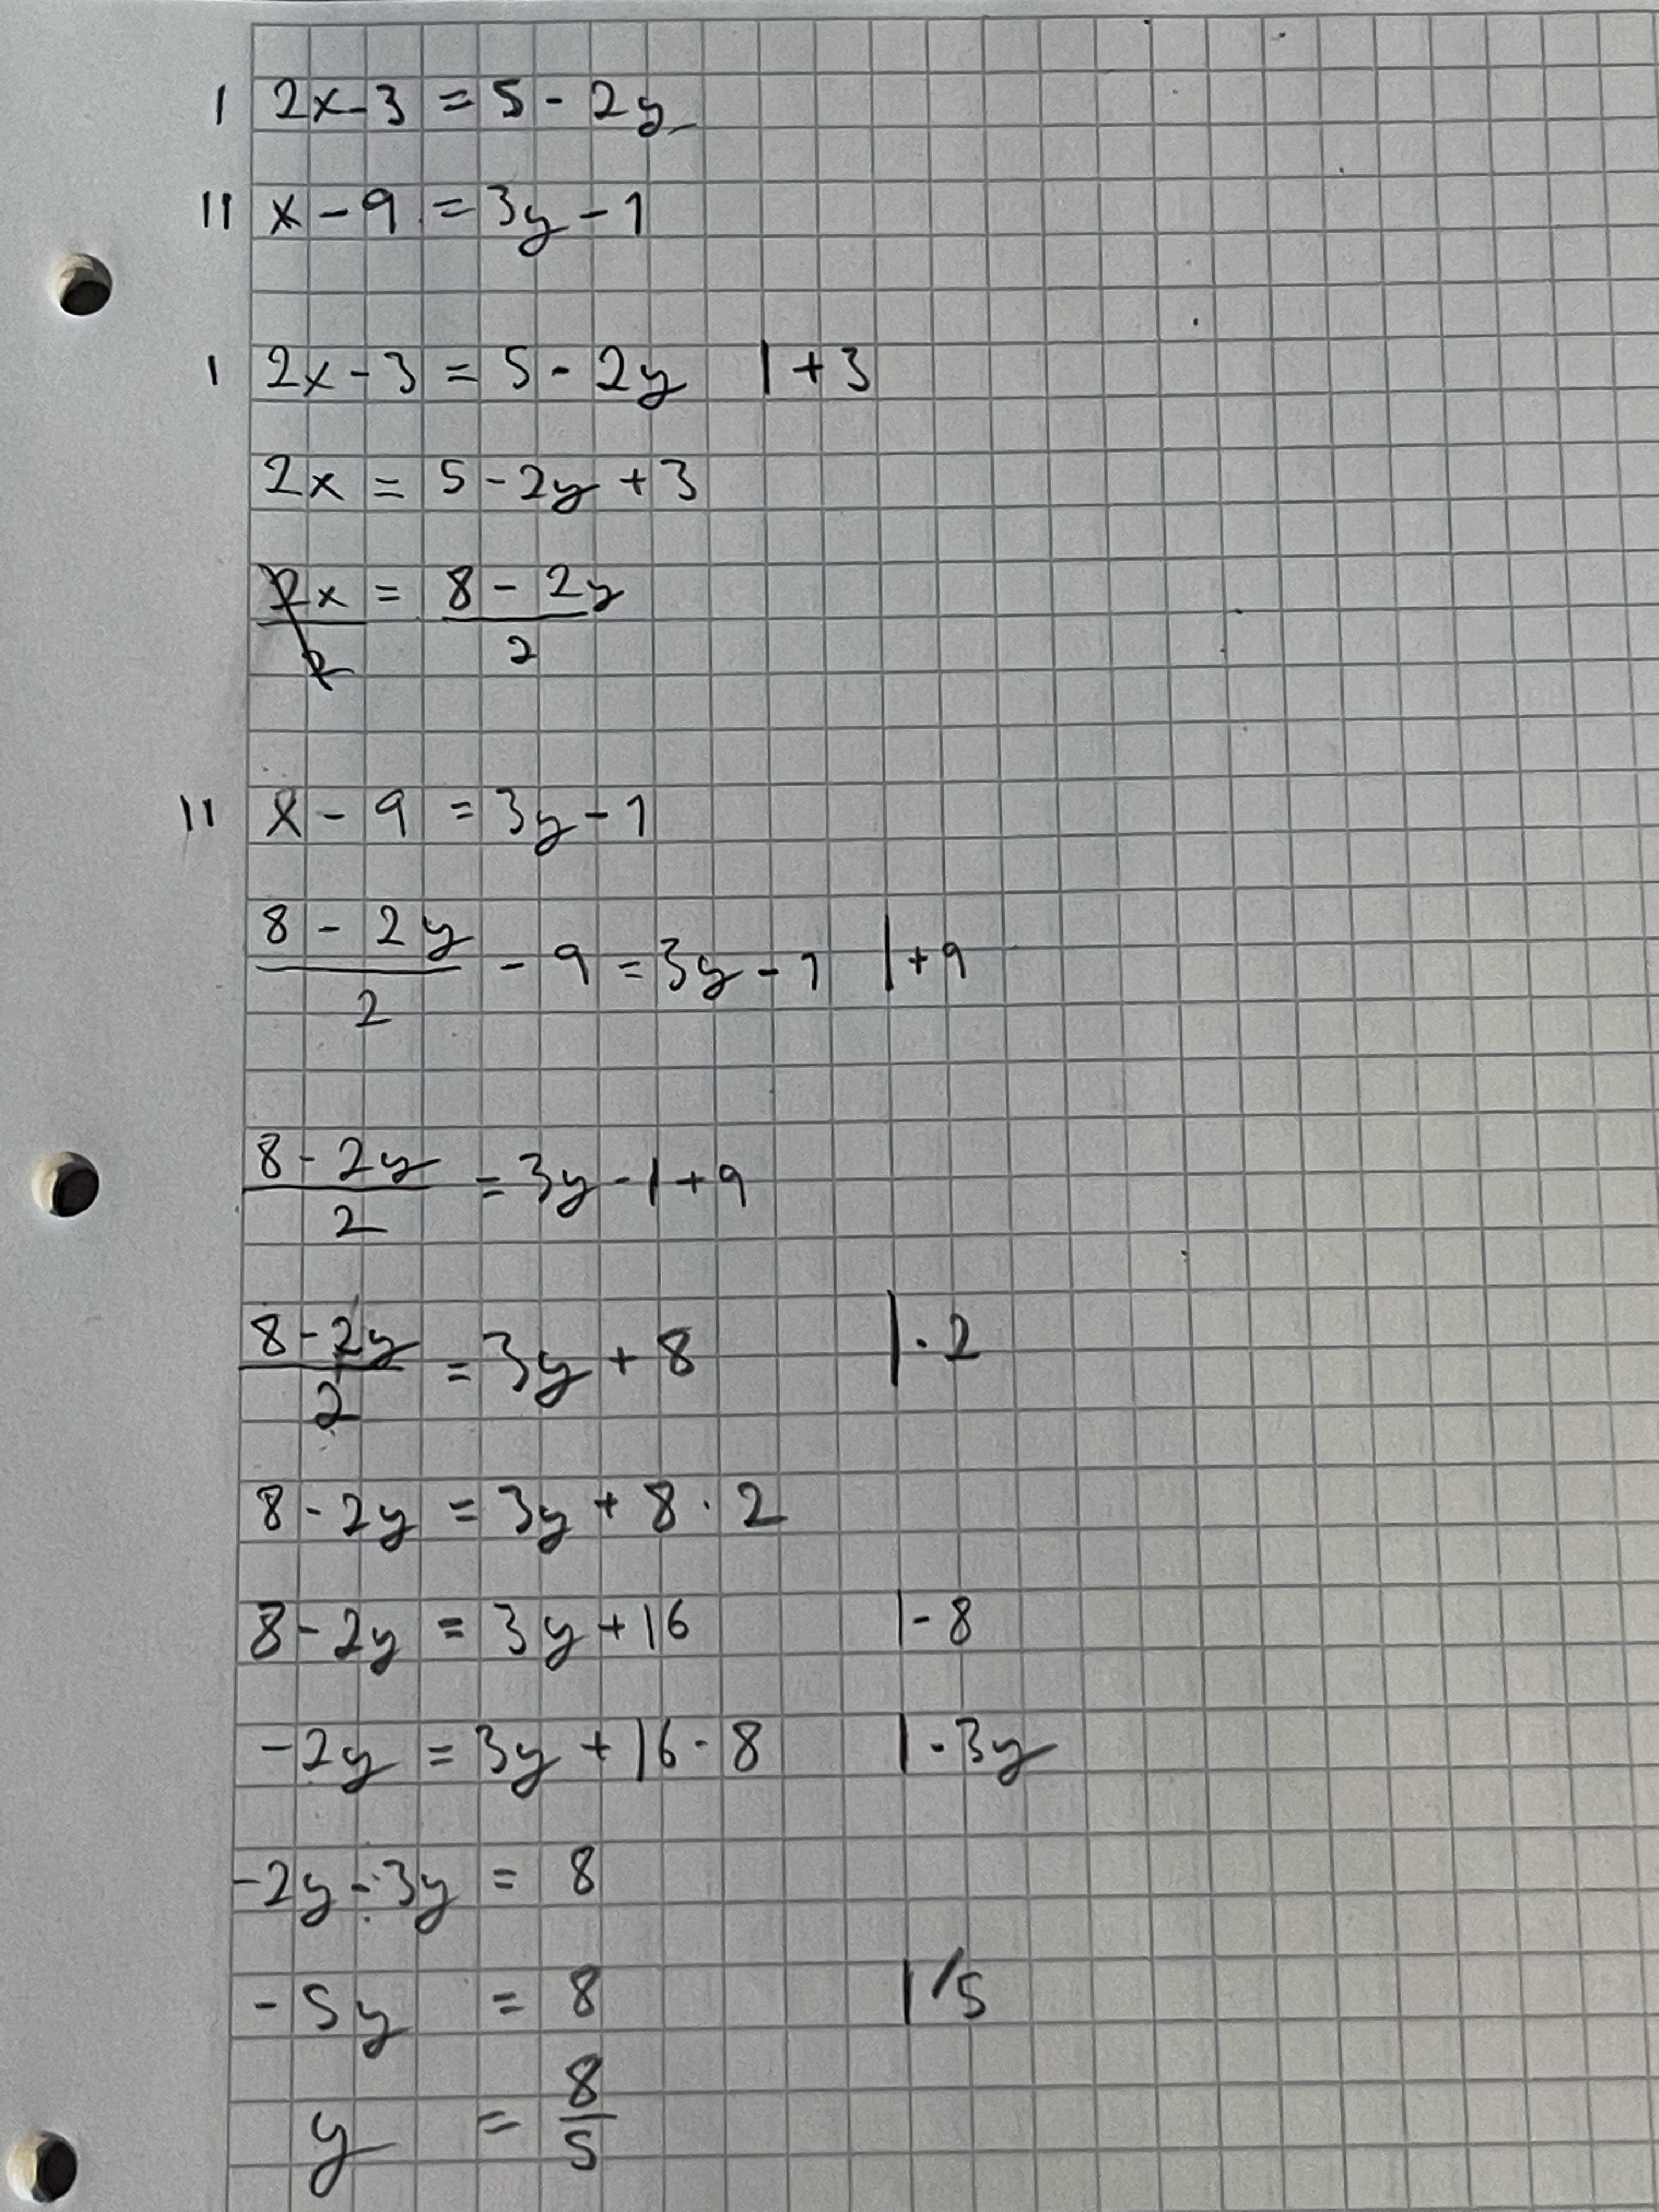 I 2x-3 = 5 - 2y
II x - 9 = 3y - 1
I 2x - 3 = 5 - 2y | + 3
2x = 5 - 2y + 3
2x/2 = (8 - 2y)/2
II x - 9 = 3y - 1
(8 - 2y)/2 - 9 = 3y - 1 | + 9
(8 - 2y)/2 = 3y - 1 + 9
(8 - 2y)/2 = 3y + 8 | · 2
8 - 2y = 3y + 8 · 2
8 - 2y = 3y + 16 | - 8
-2y = 3y + 16 - 8 | - 3y
-2y - 3y = 8
-5y = 8 | /5
y = 8/5